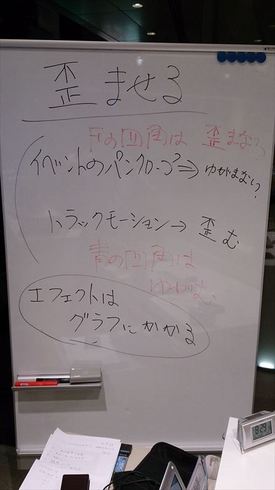 歪ませる
下の四角は 歪まない
イベントのパンクロップ⇒ゆがまない?
トラックモーション→歪む
青の四角は
エフェクトは
グラフにかかる